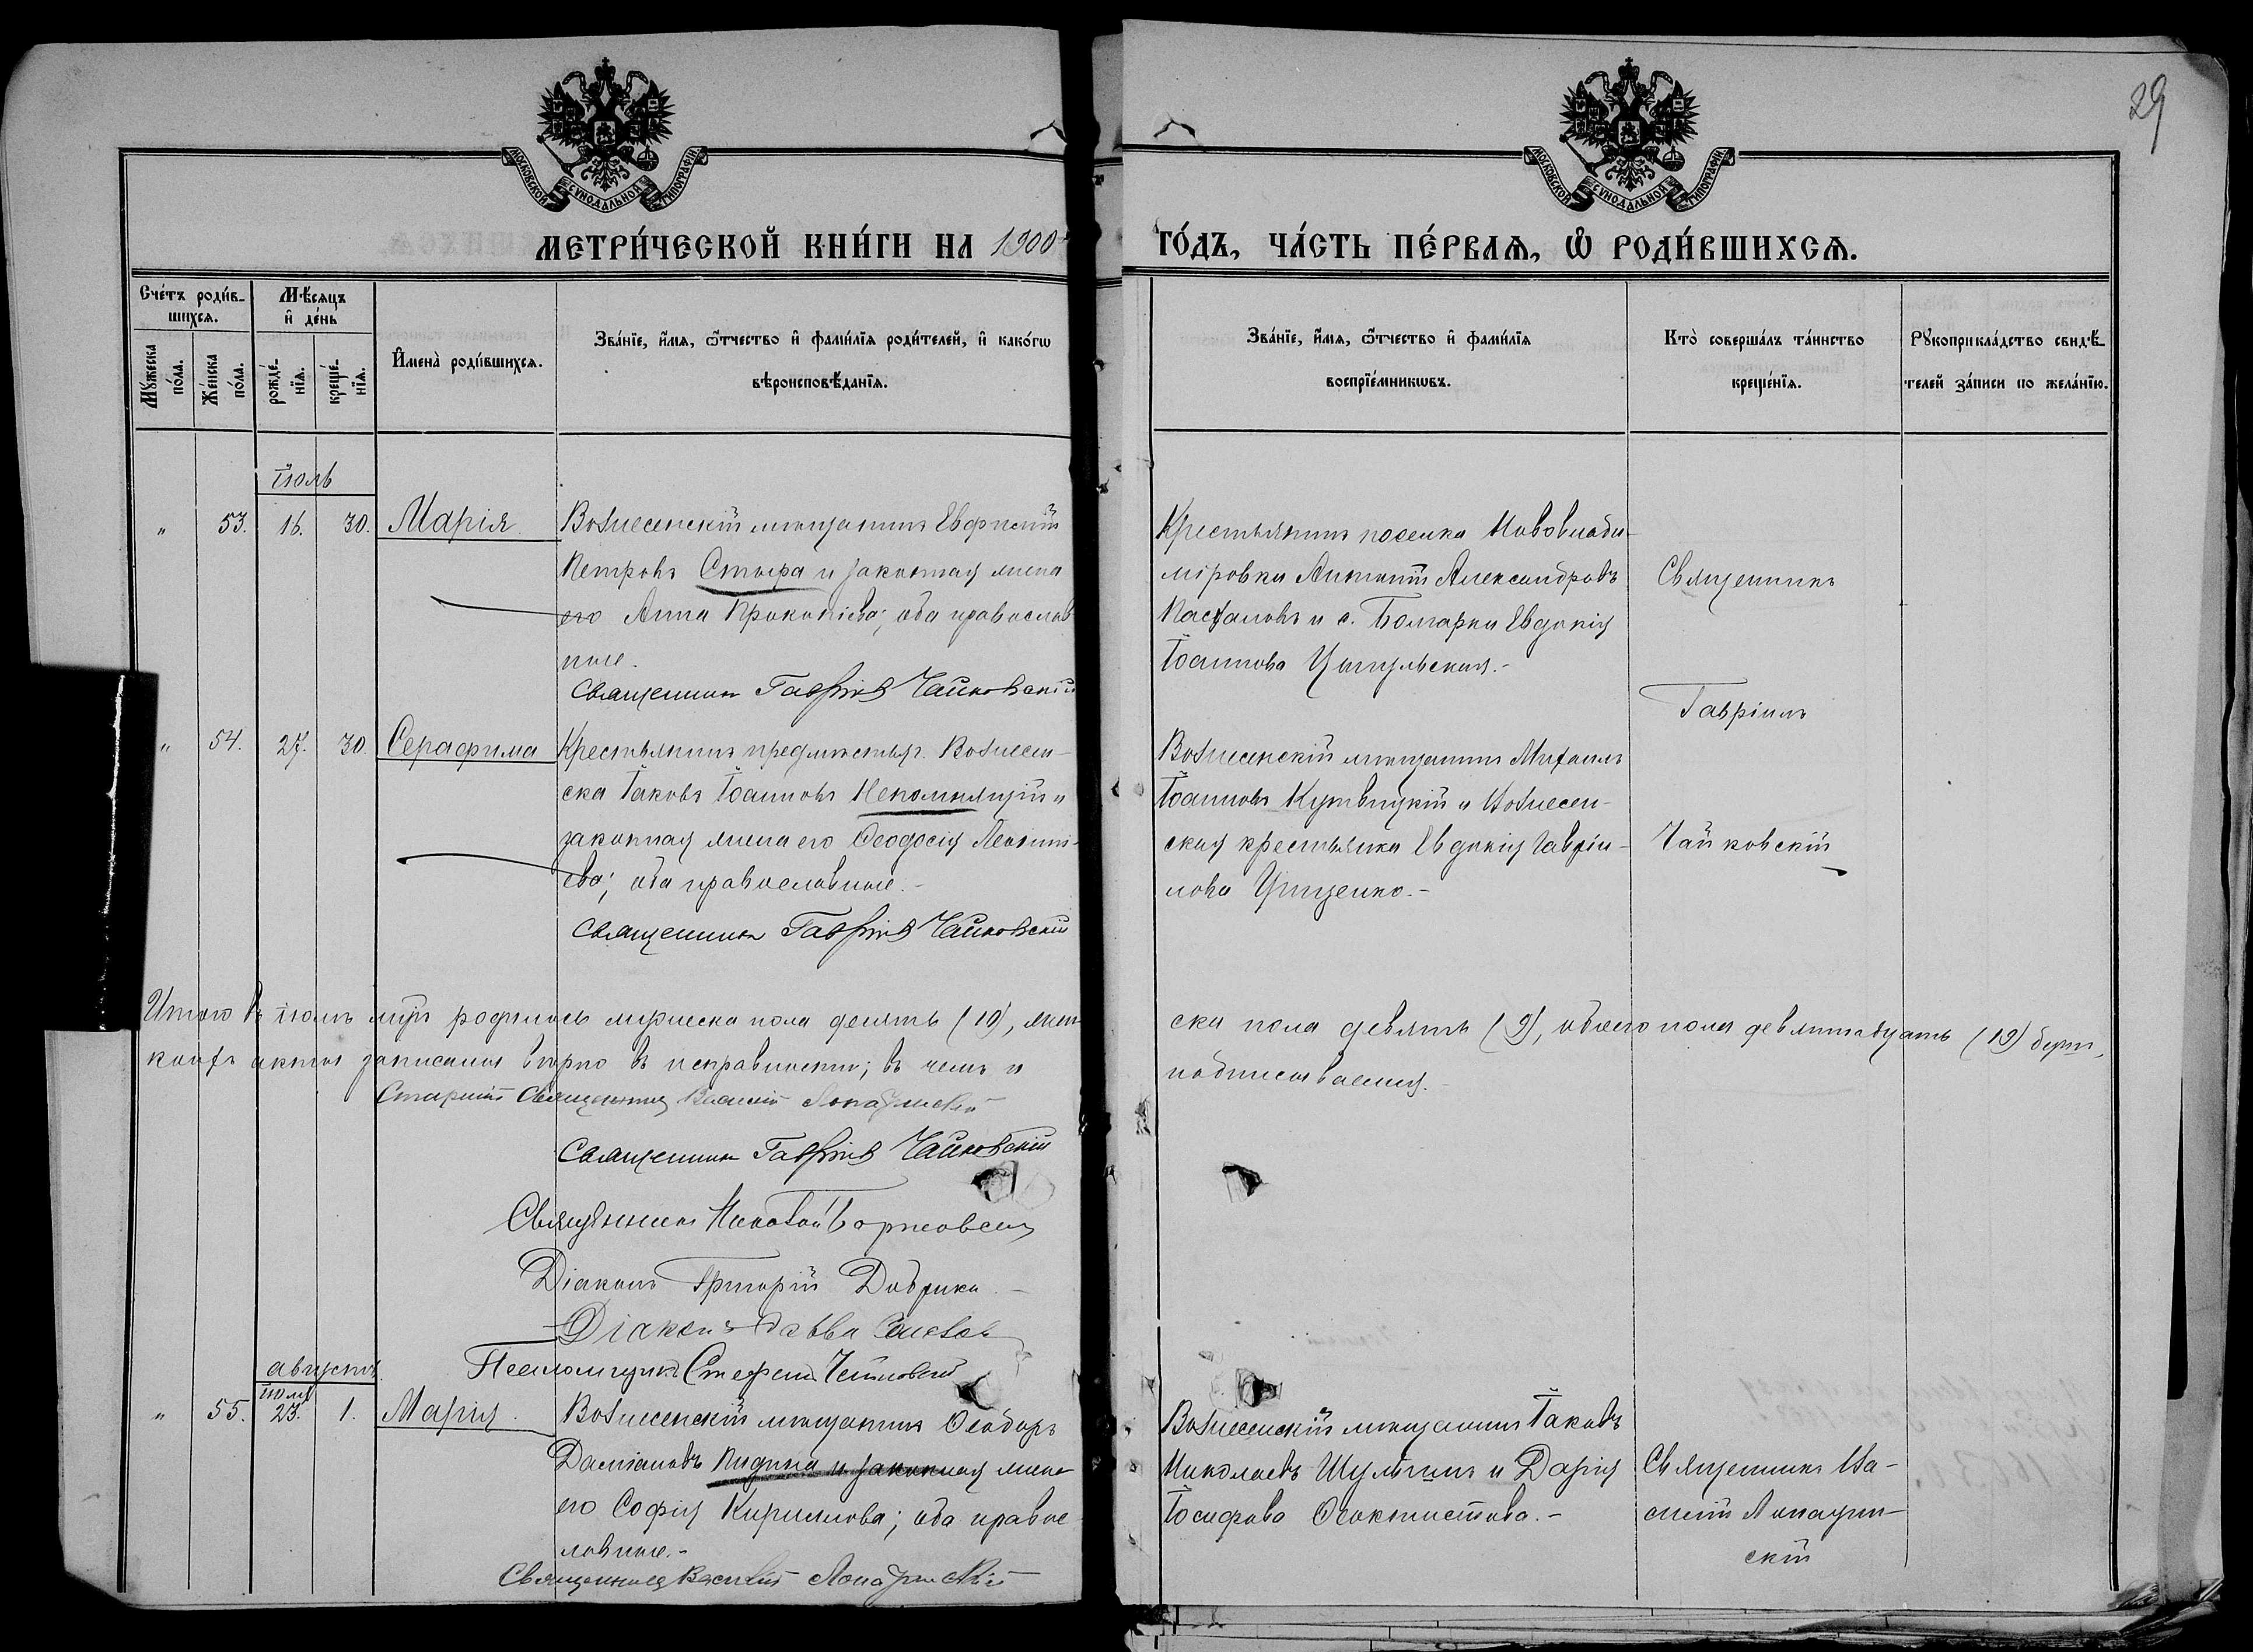 29
МОСКОВСКОЙ СѴНОДАЛЬНОЙ ТИПОГРАФІИ
МОСКОВСКОЙ СѴНОДАЛЬНОЙ ТИПОГРАФІИ
МЕТРИ́ЧЕСКОЙ КНИ́ГИ НА 1900
ГО́ДЪ, ЧА́СТЬ ПЕ́РВАѦ, Ѽ РОДИ́ВШИХСѦ.
Сче́тъ роди́в-
шихсѧ.
Мѣ́сѧцъ
и҆ де́нь
Мꙋ́жеска
по́ла.
Же́нска
по́ла.
рожде́-
нїѧ.
креще́-
нїѧ.
И҆мена̀ роди́вшихсѧ.
Зва́нїе, и҆́мѧ, ѻ҆́тчество и҆ фами́лїѧ роди́телей, и҆ како́гѡ
вѣроисповѣ́данїѧ.
Зва́нїе, и҆́мѧ, ѻ҆́тчество и҆ фами́лїѧ
воспрїе́мникѡвъ.
Кто̀ соверша́лъ та́инство
креще́нїѧ.
Рꙋкоприкла́дство свидѣ́-
телей за́писи по жела́нїю.
іюль
" 53. 16. 30. Марія
Вознесенскій мѣщанинъ Евфимій
Петровъ и законная жена
его Анна Прокопіева; оба православ
ные.
Священникъ Гавріилъ Чайковскій
Крестьянинъ поселка Нововлади-
міровки Антоній Александровъ
и с. Болгарки Евдокія
Іоаннова Цыгульская.-
Священникъ
Гавріилъ
Чайковскій
" 54. 27. 30. Серафима
Крестьянинъ предмѣстья г. Вознесен-
ска Іаковъ Іоанновъ Непомнящій и
законная жена его Ѳеодосія Леонті-
ева; оба православные.-
Священникъ Гавріилъ Чайковскій
Вознесенскій мѣщанинъ Михаилъ
Іоанновъ и Вознесен-
ская крестьянка Евдокія Гаврiи-
лова Грищенко.-
Итого въ іюлѣ м-цѣ родилось мужеска пола десять (10), жен-
ска пола девять (9), обоего пола девятнадцать (19) душъ,
коихъ акты записаны вѣрно въ исправности; въ чемъ и
подписываемся.-
Старшій Священникъ Василій Лопатинскій
Священникъ Гавріилъ Чайковскій
Священникъ Николай
Діаконъ Григорій
Діаконъ Савва
Псаломщикъ Стефанъ
августъ
іюля
" 55. 23. 1. Марія.
Вознесенскій мѣщанинъ Ѳеодоръ
Даміановъ и законная жена
его Софія Кириллова; оба правос-
лавные.-
Священникъ Василій Лопатинскій
Вознесенскій мѣщанинъ Іаковъ
Николаевъ Шульгинъ и Дарія
Іосифова Ѳеоктистова.-
Священникъ Ва-
силій Лопатин-
скій